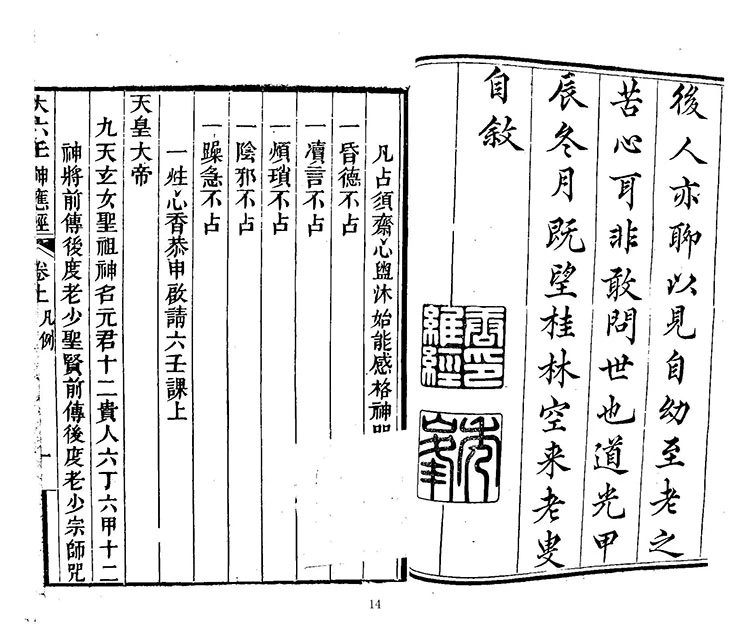 後人亦聊以見自幼至老之
苦心耳非敢問世也道光甲
辰冬月既望桂林空来老叟
自敘
凡占須齋心盥沐始能感格神明
一昏德不占
一凟言不占
一煩瑣不占
一陰邪不占
一躁急不占
一炷心香恭申啟請六壬課上
天皇大帝
九天玄女聖祖神名元君十二貴人六丁六甲十二
神將前傳後度老少聖賢前傳後度老少宗師咒
大六壬神應經 卷上 凡例
14